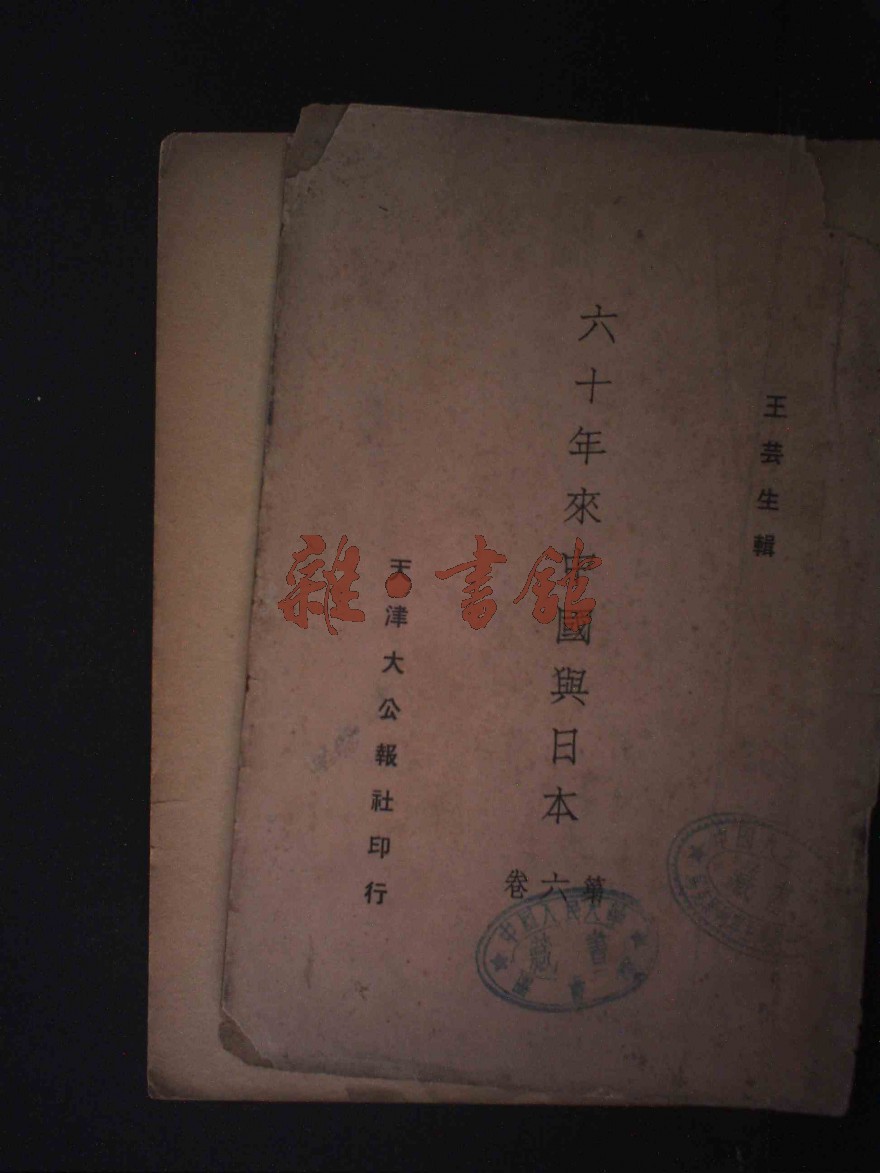 王芸生輯
六十年來中國與日本
第六卷
天津大公報社印行
雜·書館
藏書